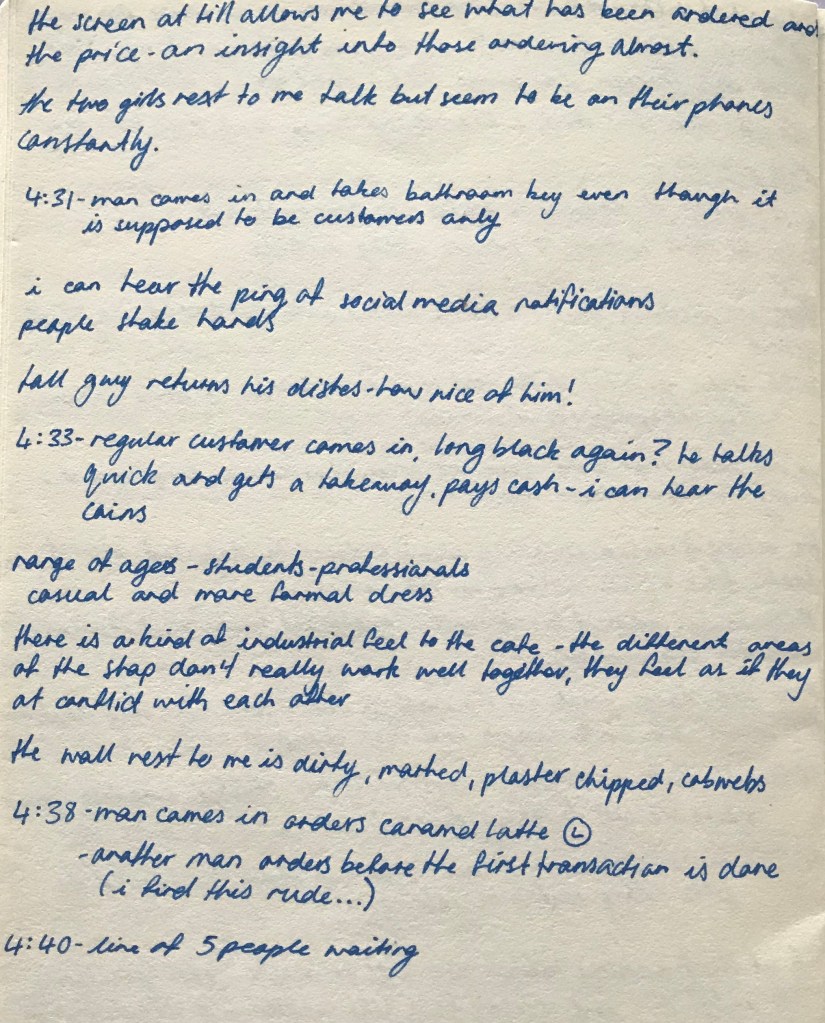 the screen at till allows me to see what has been ordered and
the price - an insight into those ordering almost.
the two girls next to me talk but seem to be on their phones
constantly.
4:31 - man comes in and takes bathroom key even though it
is supposed to be customers only
i can hear the ping of social media notifications
people shake hands
tall guy returns his dishes - how nice of him!
4:33 - regular customer comes in, long black again? he talks
quick and gets a takeaway, pays cash - i can hear the
coins
range of ages - students - professionals
casual and more formal dress
there is a kind of industrial feel to the cafe - the different areas
of the shop don't really work well together, they feel as if they
at conflict with each other
the wall next to me is dirty, marked, plaster chipped, cobwebs
4:38 - man comes in orders caramel latte Ⓛ
- another man orders before the first transaction is done
(i find this rude...)
4:40 - line of 5 people waiting